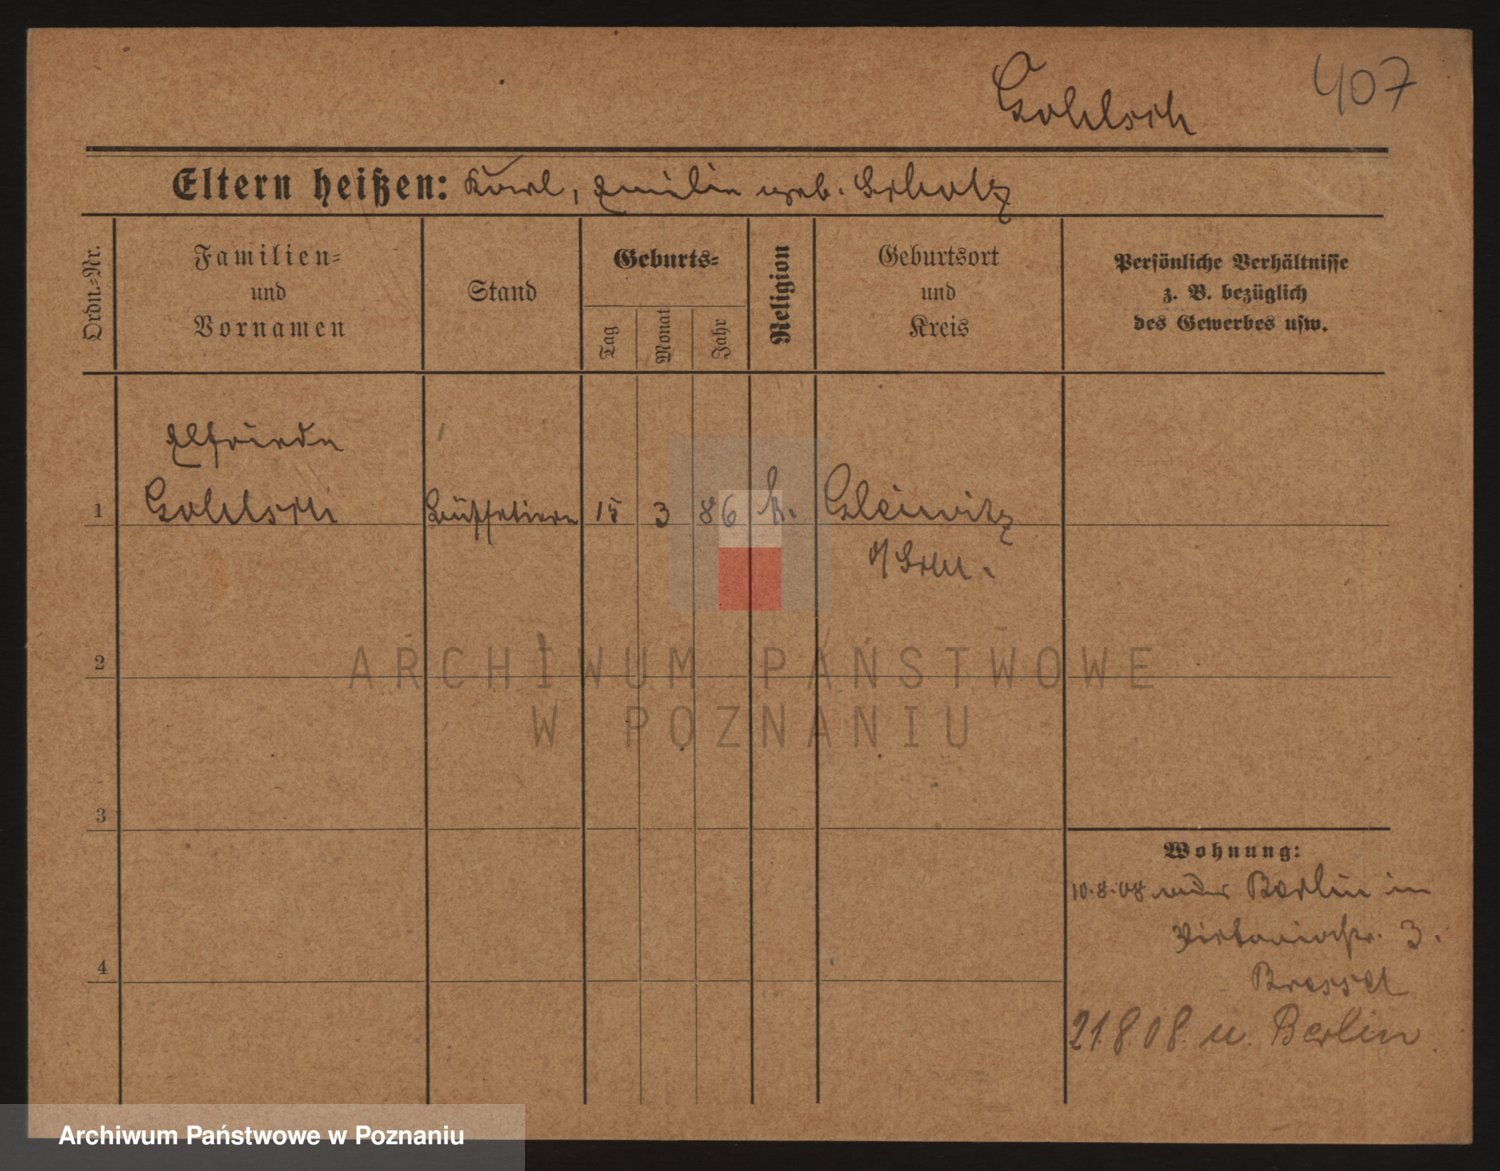 407
Gohlsch
Eltern heißen: Karl, Emilie geb. Scholz
Ordn.=Nr.
Familien=
und
Vornamen
Stand
Geburts=
Tag
Monat
Jahr
Religion
Geburtsort
und
Kreis
Persönliche Verhältnisse
z. B. bezüglich
des Gewerbes usw.
Elfriede
1 Gohlsch Büffetiere 15 3 86 k. Gleiwitz
o/Schl.
2
ARCHIWUM PAŃSTWOWE
W POZNANIU
3
Wohnung:
10.8.08 Berlin in
Victoriastr. 3.
4
21.8.08. n. Berlin
Archiwum Państwowe w Poznaniu